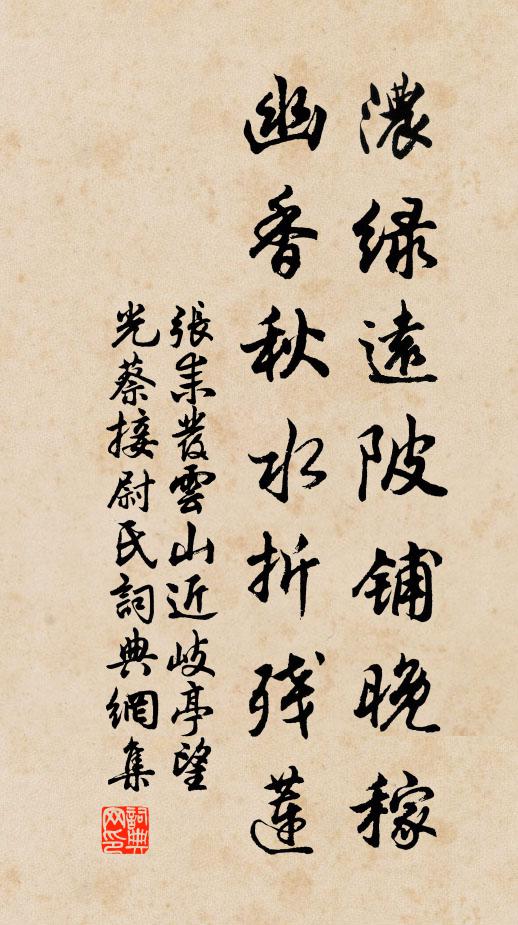 濃緑遠陂鋪晚稼
幽香秋水折残蓮
張耒發雲山近岐亭望
光蔡接尉氏詞典網集
詞典网印